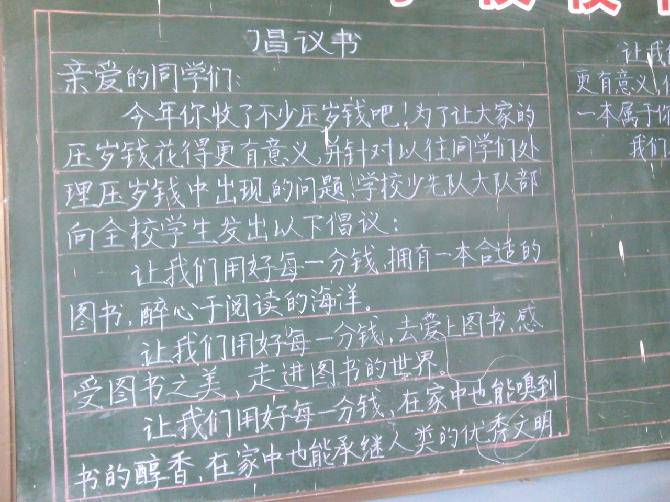 倡议书
亲爱的同学们:
今年你收了不少压岁钱吧!为了让大家的
压岁钱花得更有意义,并针对以往同学们处
理压岁钱中出现的问题!学校少先队大队部
向全校学生发出以下倡议:
让我们用好每一分钱,拥有一本合适的
图书,醉心于阅读的海洋。
让我们用好每一分钱,去爱上图书、感
受图书之美,走进图书的世界。
让我们用好每一分钱,在家中也能嗅到
书的醇香,在家中也能承继人类的优秀文明.
让我
更有意义,
一本属于
我们